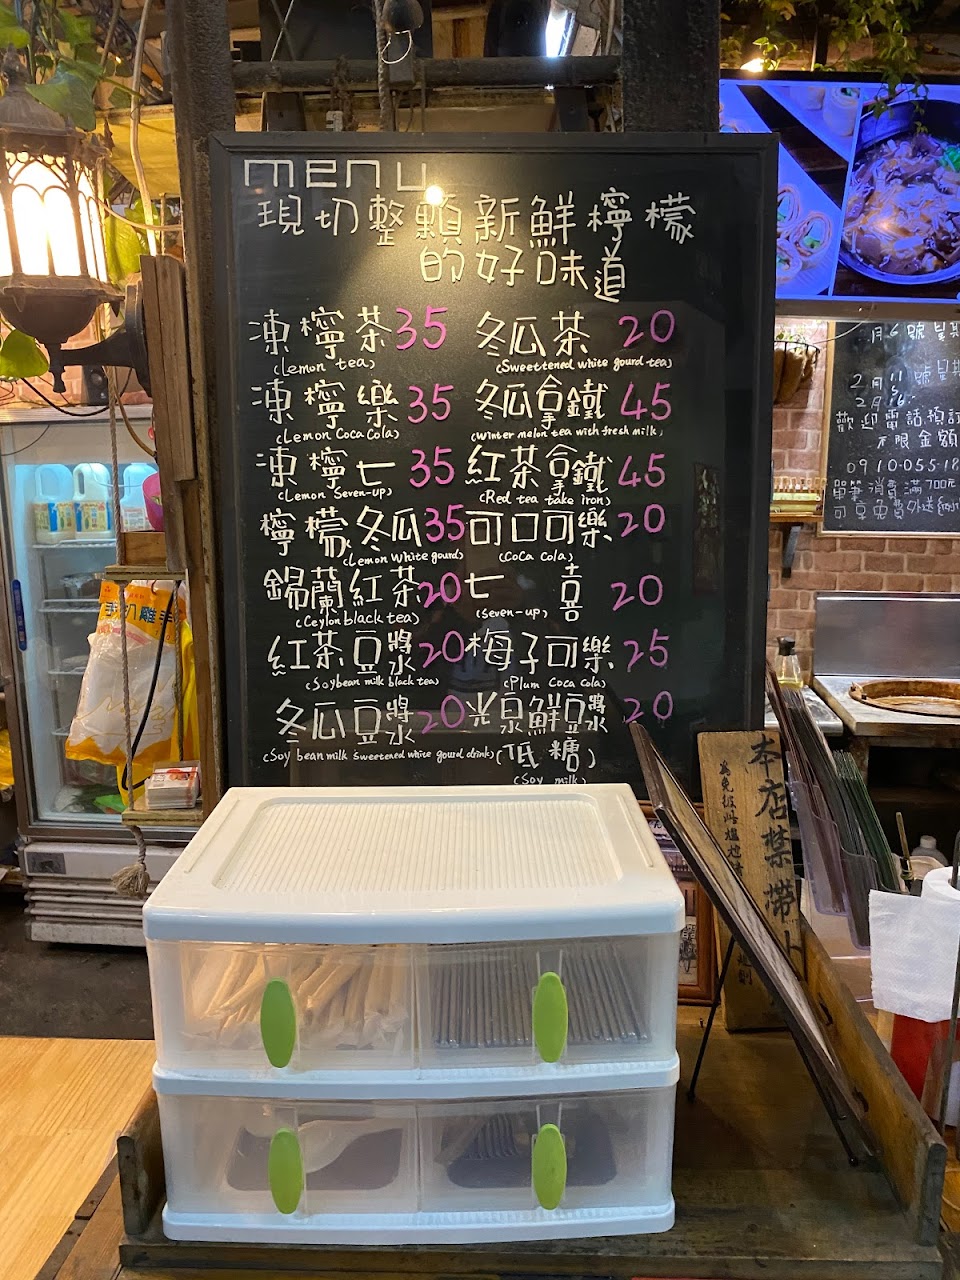 menu
現切整顆新鮮檸檬
的好味道
凍檸茶 35 冬瓜茶 20
(Lemon tea) (Sweettened white gourd tea)
凍檸樂 35 冬瓜拿鐵 45
(Lemon Coca Cola) (Winter melon tea with fresh milk)
凍檸七 35 紅茶拿鐵 45
(Lemon Seven-up) (Red tea take iron)
檸檬冬瓜 35 可口可樂 20
(Lemon White gourd) (CoCa Cola)
錫蘭紅茶 20 七喜 20
(Ceylon black tea) (Seven-up)
紅茶豆漿 20 梅子可樂 25
(Soybean milk black tea) (Plum Coca Cola)
冬瓜豆漿 20 光泉鮮豆漿 20
(Soy bean milk sweetened white gourd drink) (低糖)
(Soy milk)
2月11號星期
2月16
歡迎電話預訂
不限金額
0910-055-18
單筆消費滿700元
可享免費外送
本店禁帶